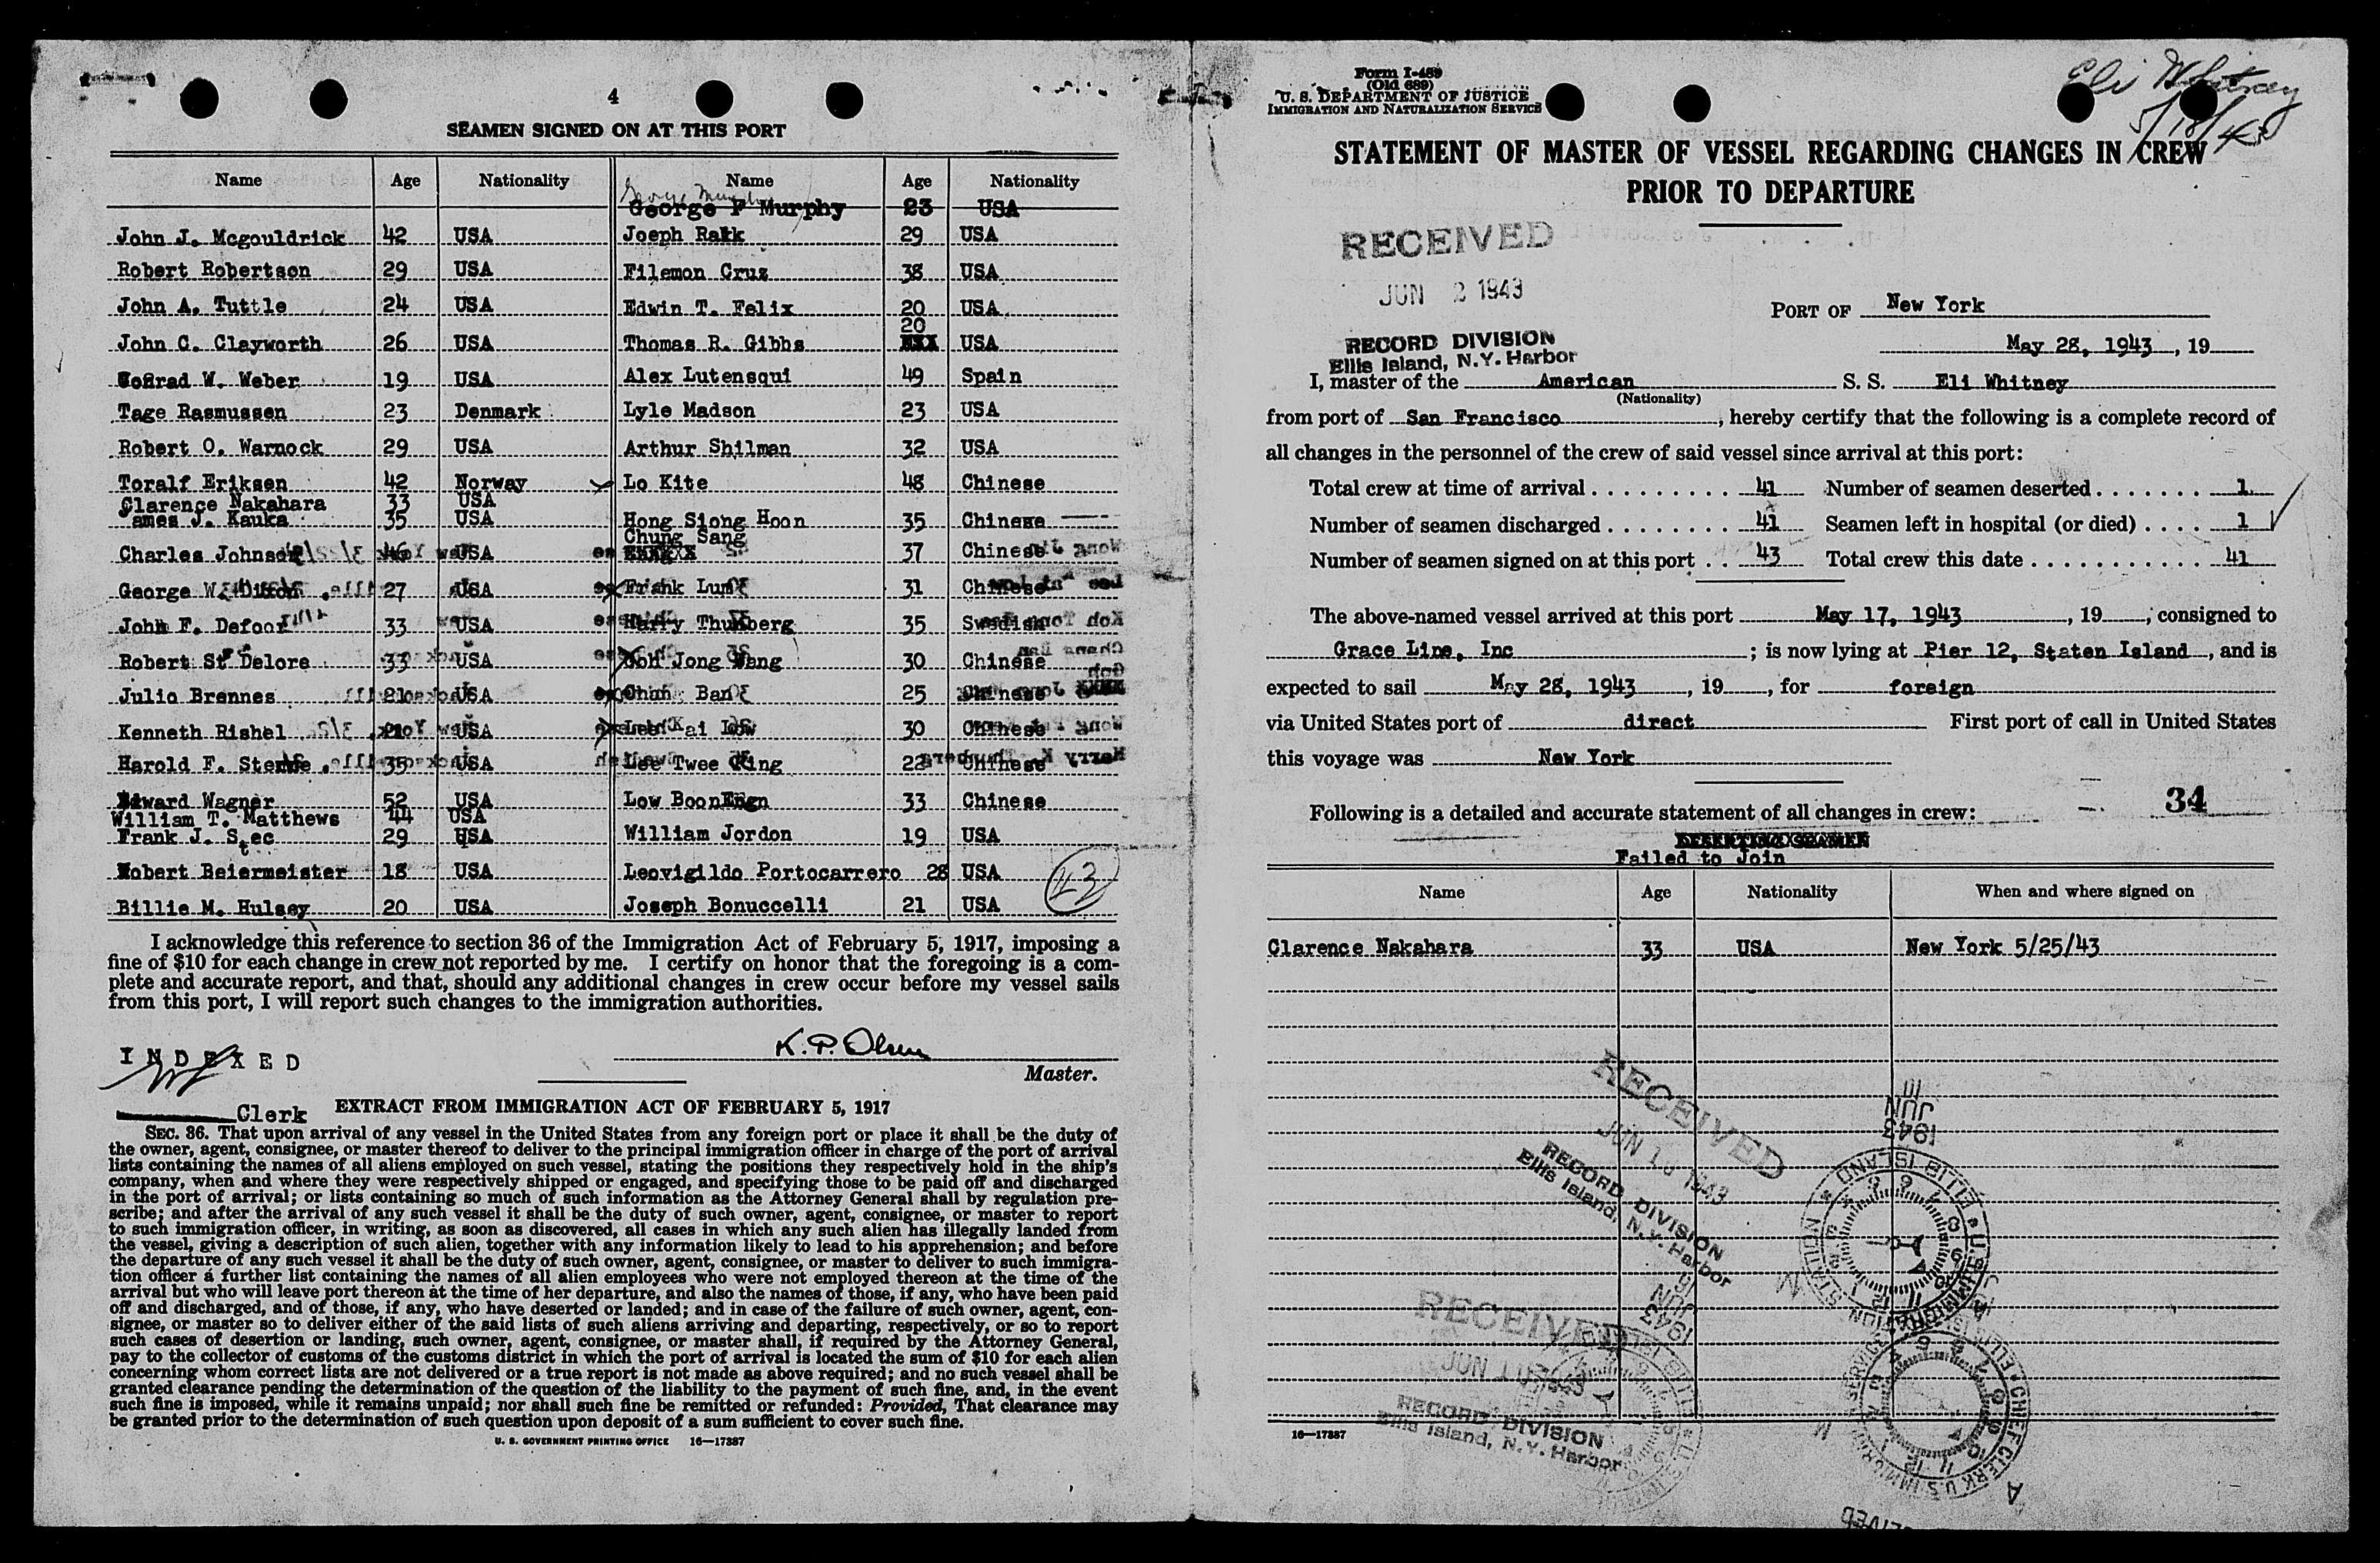 4
SEAMEN SIGNED ON AT THIS PORT
Name Age Nationality Name Age Nationality
George Murphy
George F Murphy 23 USA
John J. Mcgouldrick 42 USA Joeph Rakk 29 USA
Robert Robertson 29 USA Filemon Cruz 38 USA
John A. Tuttle 24 USA Edwin T. Felix 20 USA
20
John C. Clayworth 26 USA Thomas R. Gibbs USA
Conrad W. Weber 19 USA Alex Lutensqui 49 Spain
Tage Rasmussen 23 Denmark Lyle Madson 23 USA
Robert O. Warnock 29 USA Arthur Shilman 32 USA
Toralf Eriksen 42 Norway Lo Kite 48 Chinese
Clarence Nakahara 33 USA
James J. Kauka 35 USA Hong Siong Hoon 35 Chinese
Chung Sang
Charles Johnson 46 USA 37 Chinese
George W. 27 USA Frank Lum 31 Chinese
John F. Defoor 33 USA Harry Thunberg 35 Swedish
Robert St Delore 33 USA Goh Jong Wang 30 Chinese
Julio Brennes 21 USA Chan Ban 25 Chinese
Kenneth Rishel 21 USA Lee Kai Low 30 Chinese
Harold F. 35 USA Lee Twee King 22 Chinese
Edward Wagner 52 USA Low Boon 33 Chinese
William T. Matthews 44 USA
Frank J. Stec 29 USA William Jordon 19 USA
Robert Beiermeister 18 USA Leovigildo Portocarrero 28 USA
43
Billie M. Hulsey 20 USA Joseph Bonuccelli 21 USA
I acknowledge this reference to section 36 of the Immigration Act of February 5, 1917, imposing a
fine of $10 for each change in crew not reported by me. I certify on honor that the foregoing is a com-
plete and accurate report, and that, should any additional changes in crew occur before my vessel sails
from this port, I will report such changes to the immigration authorities.
K. P. Olsen
Master.
INDEXED
Clerk
EXTRACT FROM IMMIGRATION ACT OF FEBRUARY 5, 1917
SEC. 36. That upon arrival of any vessel in the United States from any foreign port or place it shall be the duty of
the owner, agent, consignee, or master thereof to deliver to the principal immigration officer in charge of the port of arrival
lists containing the names of all aliens employed on such vessel, stating the positions they respectively hold in the ship's
company, when and where they were respectively shipped or engaged, and specifying those to be paid off and discharged
in the port of arrival; or lists containing so much of such information as the Attorney General shall by regulation pre-
scribe; and after the arrival of any such vessel it shall be the duty of such owner, agent, consignee, or master to report
to such immigration officer, in writing, as soon as discovered, all cases in which any such alien has illegally landed from
the vessel, giving a description of such alien, together with any information likely to lead to his apprehension; and before
the departure of any such vessel it shall be the duty of such owner, agent, consignee, or master to deliver to such immigra-
tion officer a further list containing the names of all alien employees who were not employed thereon at the time of the
arrival but who will leave port thereon at the time of her departure, and also the names of those, if any, who have been paid
off and discharged, and of those, if any, who have deserted or landed; and in case of the failure of such owner, agent, con-
signee, or master so to deliver either of the said lists of such aliens arriving and departing, respectively, or so to report
such cases of desertion or landing, such owner, agent, consignee, or master shall, if required by the Attorney General,
pay to the collector of customs of the customs district in which the port of arrival is located the sum of $10 for each alien
concerning whom correct lists are not delivered or a true report is not made as above required; and no such vessel shall be
granted clearance pending the determination of the question of the liability to the payment of such fine, and, in the event
such fine is imposed, while it remains unpaid; nor shall such fine be remitted or refunded: Provided, That clearance may
be granted prior to the determination of such question upon deposit of a sum sufficient to cover such fine.
U. S. GOVERNMENT PRINTING OFFICE 16—17387
Form I-489
(Old 689)
U. S. DEPARTMENT OF JUSTICE
IMMIGRATION AND NATURALIZATION SERVICE
Eli Whitney
5/18/43
STATEMENT OF MASTER OF VESSEL REGARDING CHANGES IN CREW
PRIOR TO DEPARTURE
RECEIVED
JUN 2 1943
RECORD DIVISION
Ellis Island, N.Y. Harbor
PORT OF New York
May 28, 1943, 19
I, master of the American S. S. Eli Whitney
(Nationality)
from port of San Francisco, hereby certify that the following is a complete record of
all changes in the personnel of the crew of said vessel since arrival at this port:
Total crew at time of arrival 41 Number of seamen deserted 1
Number of seamen discharged 41 Seamen left in hospital (or died) 1
Number of seamen signed on at this port 43 Total crew this date 41
The above-named vessel arrived at this port May 17, 1943, 19, consigned to
Grace Line, Inc; is now lying at Pier 12, Staten Island, and is
expected to sail May 28, 1943, 19, for foreign
via United States port of direct First port of call in United States
this voyage was New York
34
Following is a detailed and accurate statement of all changes in crew:
DESERTING SEAMEN
Failed to Join
Name Age Nationality When and where signed on
Clarence Nakahara 33 USA New York 5/25/43
RECEIVED
JUN 10 1943
RECORD DIVISION
Ellis Island, N.Y. Harbor
JUN
1943
JUN
1943
RECEIVED
JUN 10 1943
RECORD DIVISION
Ellis Island, N.Y. Harbor
16—17387